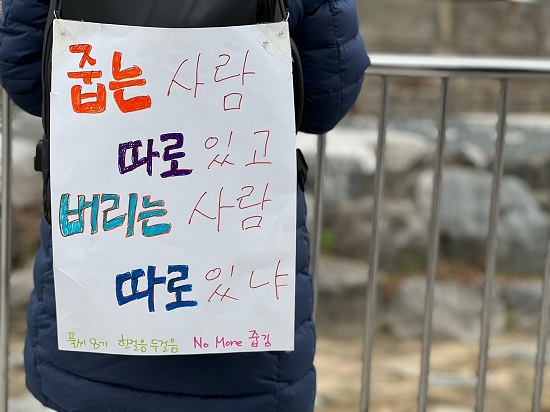 줍는 사람
따로 있고
버리는 사람
따로 있냐
풀씨 8기 한걸음 두걸음 No More 줍깅